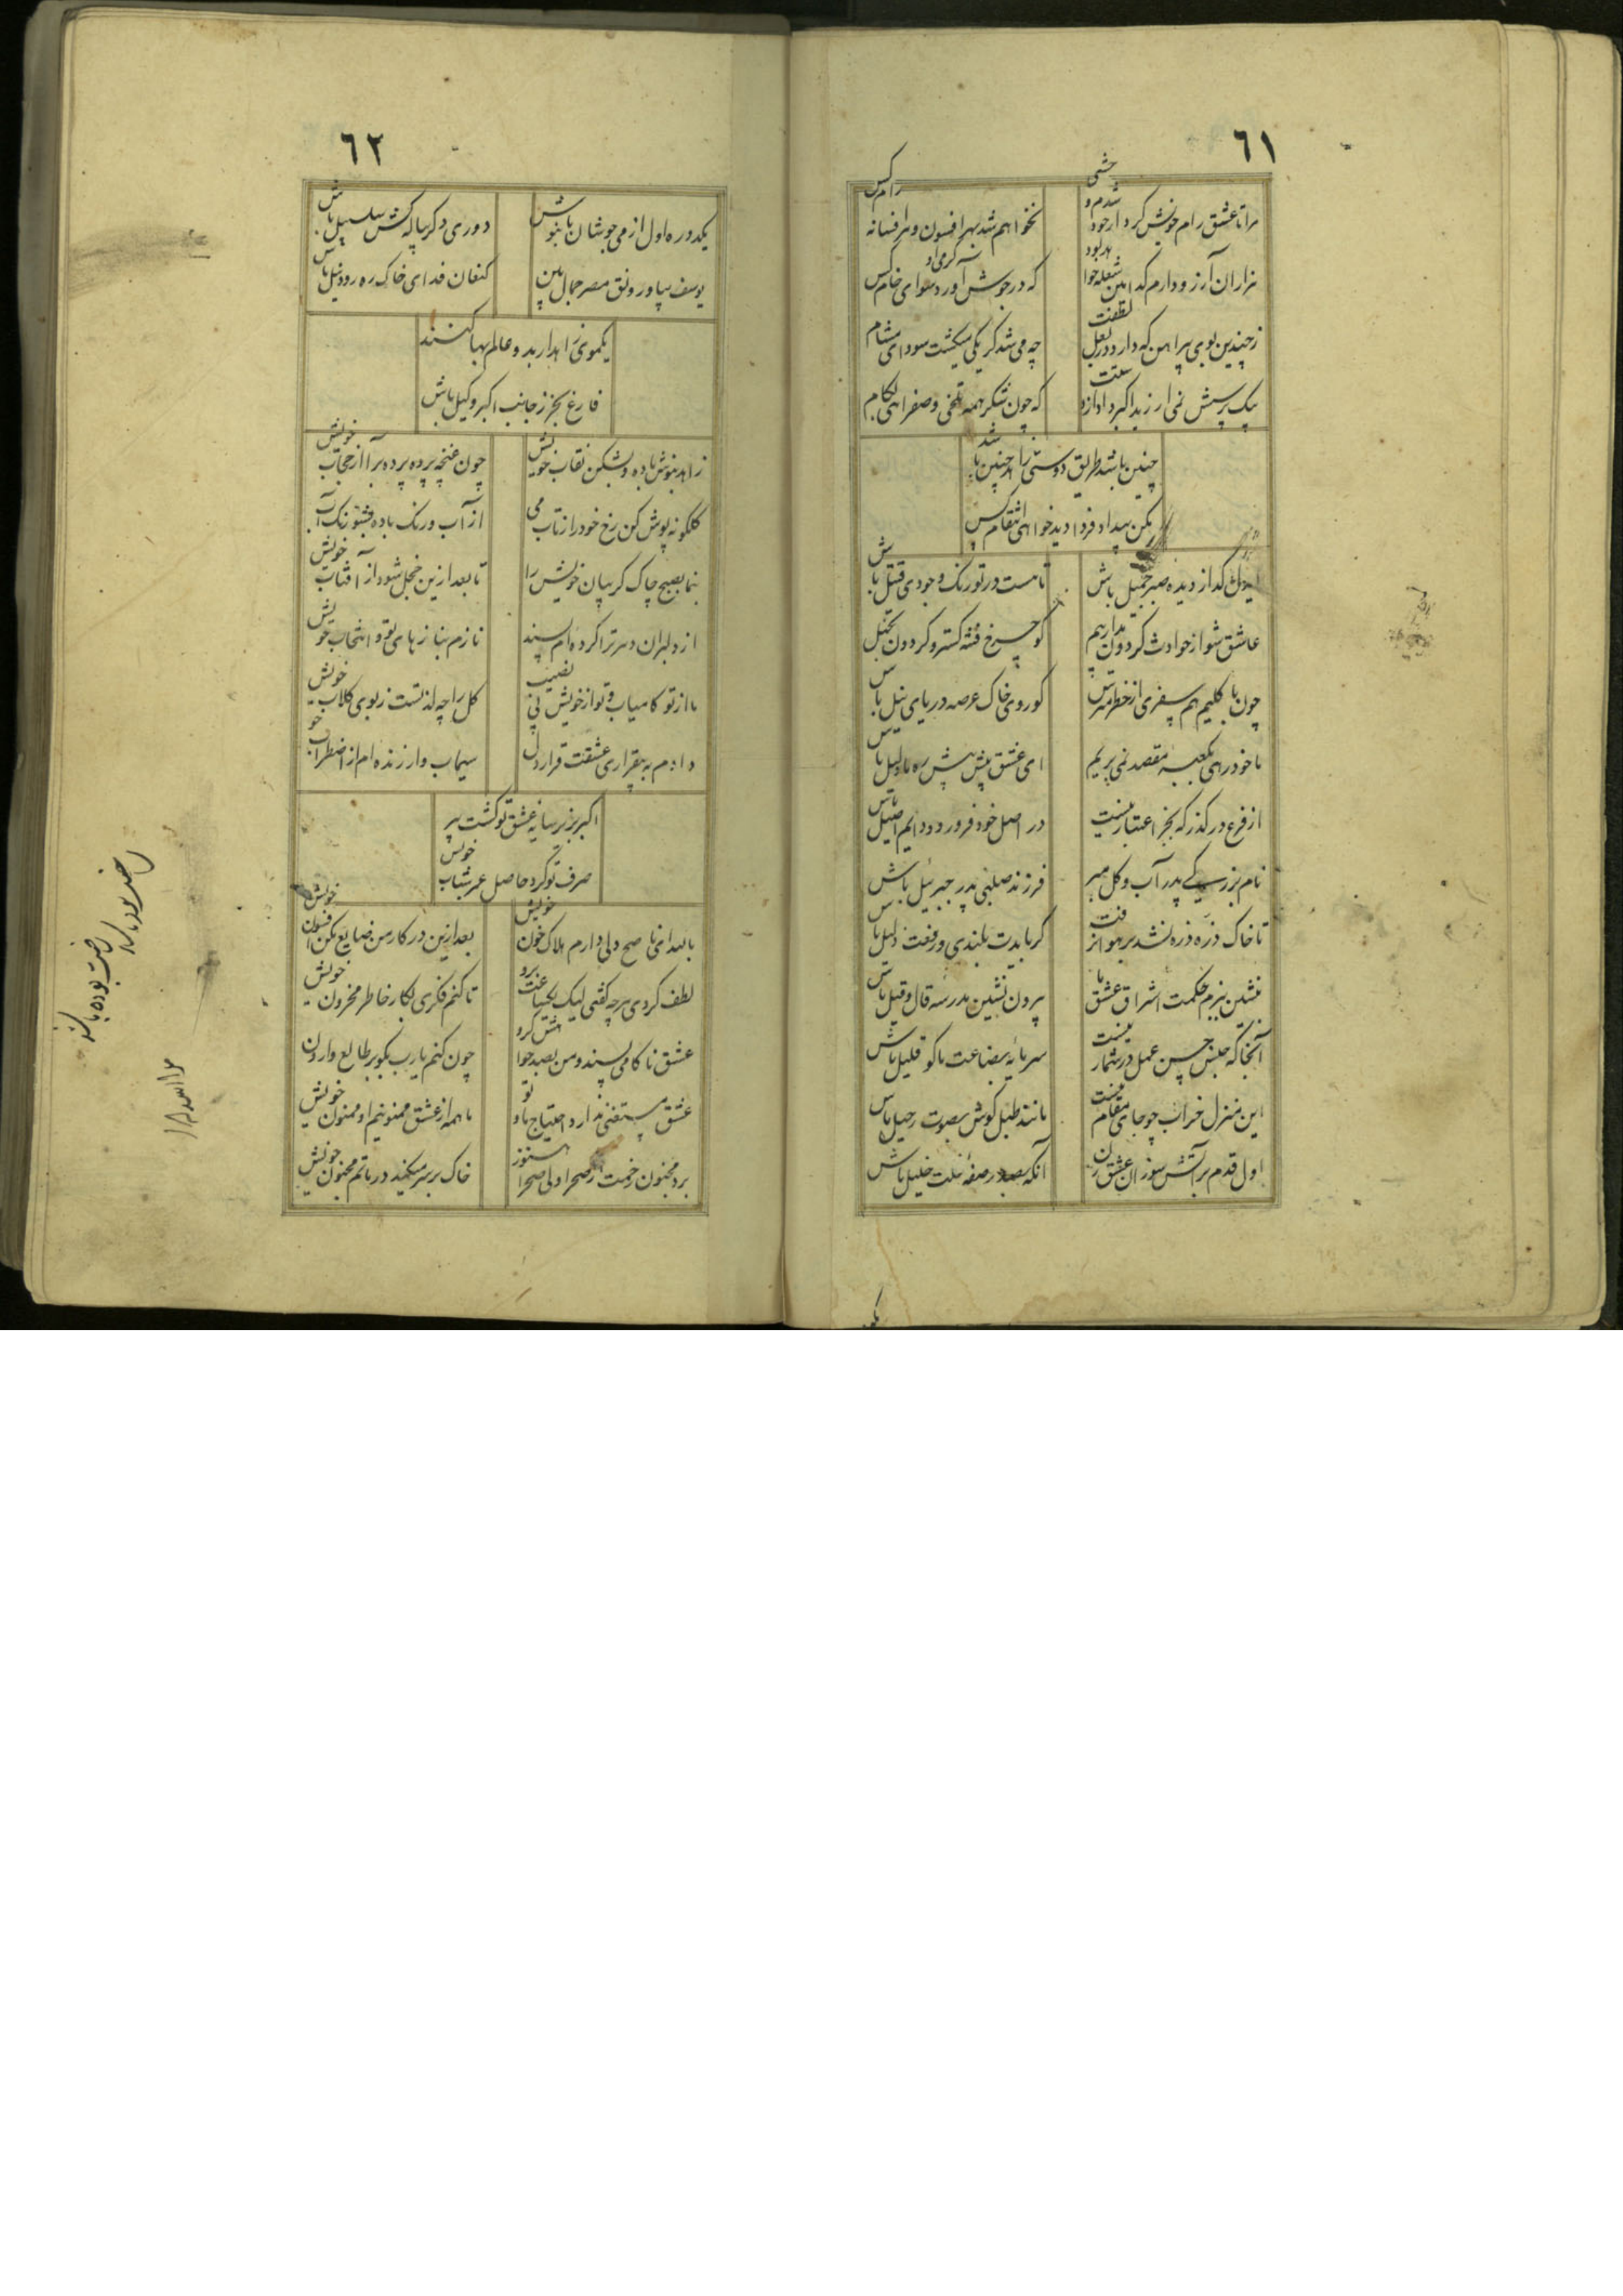 ٦١
مرا تا عشق رام خویش کرد از خود شدم وحشی
نخواهم شد بهر افسون و هر افسانه رام کس
هزاران آرزو دارم کدامین شعله خو
که در جوش آورد سودای خام کس
ز چندین بوی پیراهن که دارد در بغل لطفت
چه می شد گر یکی میگشت سودای مشام
بیک پرسش نمی ارزید اکبر
که چون شکر همه تلخی و صفرا
چنین باشد طریق دوستی را
مکن بیداد فردا دید خواهی انتقام کس
گداز دیده صبر جمیل باش
تا هست در تو رنگ وجودی قتیل باش
عاشق شو از حوادث گردون مدار بیم
گو چرخ فتنه گستر و گردون
چون با کلیم هم سفری از خطر مترس
گو روی خاک عرصه دریای نیل باش
با خود رهی بکعبه مقصد نمی بریم
ای عشق پیش پیش ره ما دلیل باش
از فرع در گذر که بجز اعتبار نیست
در اصل خود فرو رو و دایم اصیل باش
نام بزرگی پدر آب و گل مبر
فرزند صلبی پدر جبرئیل باش
تا خاک ذره ذره نشد بر هوا نرفت
گر بایدت بلندی و رفعت ذلیل باش
بنشین ببزم حکمت اشراق عشق ما
بیرون نشین مدرسه قال و قیل باش
آنجا که جنس حسن عمل در شمار نیست
سرمایه بضاعت ما گو قلیل باش
این منزل خراب چو جای مقام نیست
مانند طبل گوش بصوت رحیل باش
اول قدم بر آتش سوزان عشق زن
آنگه بصدر صفه ملت خلیل باش
٦٢
یکدوره اول از می جوشان ما بنوش
دوری دگر بیا که کش سلسبیل باش
یوسف بیا و رونق مصر جمال بین
کنعان فدای خاک ره رود نیل باش
یکموی زاهدار بدو عالم بها کنند
فارغ بخر ز جانب اکبر وکیل باش
زاهد بنوش باده و بشکن نقاب خویش
چون غنچه پرده پرده برآ از حجاب خویش
گلگونه پوش کن رخ خود را ز تاب می
از آب و رنگ باده
بنما بصبح چاک گریبان خویش را
تا بعد ازین خجل شود از آفتاب خویش
از دلبران دهر ترا کرده ام پسند
نازم بناز های تو و انتخاب خویش
ما از تو کامیاب و تو از خویش بی نصیب
گل را چه لذتست ز بوی گلاب خویش
دادم به بیقراری عشقت قرار دل
سیماب وار زنده ام از اضطراب خو
اکبر بزیر سایه عشق تو گشت پیر
صرف تو کرد حاصل عمر شباب خویش
با لله ای ناصح دلی دارم هلاک خون خویش
بعد ازین در کار من ضایع مکن افسون خویش
لطف کردی هر چه گفتی لیک
تا کنم فکری بکار خاطر محزون خویش
عشق ناکامی پسند و من بصد
چون کنم یارب بگو بر طالع وارون
عشق مستغنی ندارد احتیاج ما و تو
ما همه از عشق ممنونیم او ممنون خویش
برد مجنون رخت از صحرا ولی صحرا هنوز
خاک بر سر میکند در ماتم مجنون خویش